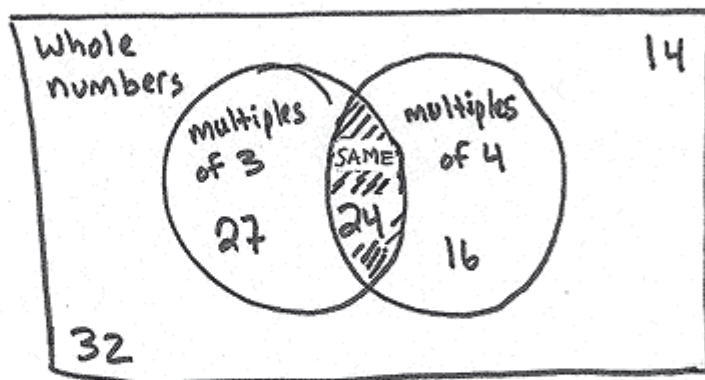 Whole
numbers
14
multiples
of 3
SAME
multiples
of 4
27
24
16
32